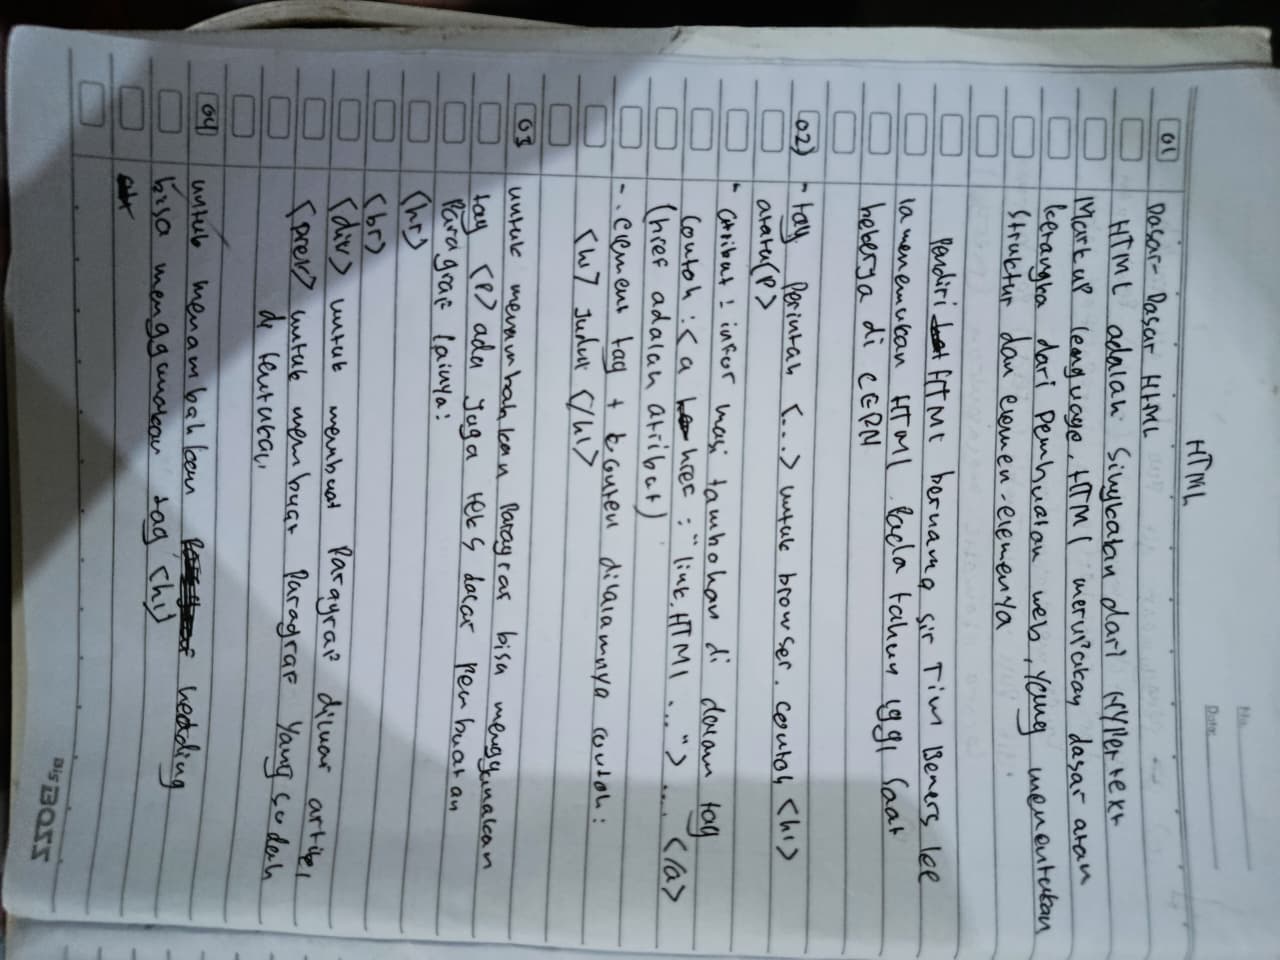 No.
Date:
HTML
01 Dasar-Dasar HTML
HTML adalah Singkatan dari HYPertext
Markup lenguage, HTML merupakay dasar atau
kerangka dari Pembuatan web, yang menentukan
struktur dan elemen-elemenya
Pendiri HTML bernama sir Tim Beners lee
ia menemukan HTML Pada tahun 1991 Saat
bekerja di CERN
02) - tag Perintah <...> untuk browser. contoh <h1>
atatu<P>
- atribut : infor masi tambahan di dalam tag
Contoh : <a href : "link.HTML ..."> .... </a>
(href adalah atribut)
- . element tag + konten dilalamnya contoh :
<h1> Judul </h1>
03 untuk menambahkan Paragraf bisa menggunakan
tag <P> ada juga teks dasar pembuatan
Paragraf lainya:
<hr>
<br>
<div> untuk membuat Paragraf diluar artikel
<prek> untuk membuat Paragraf yang sudah
di tentukan
04 untuk menambahkan hedding
bisa menggunakan tag <h1>